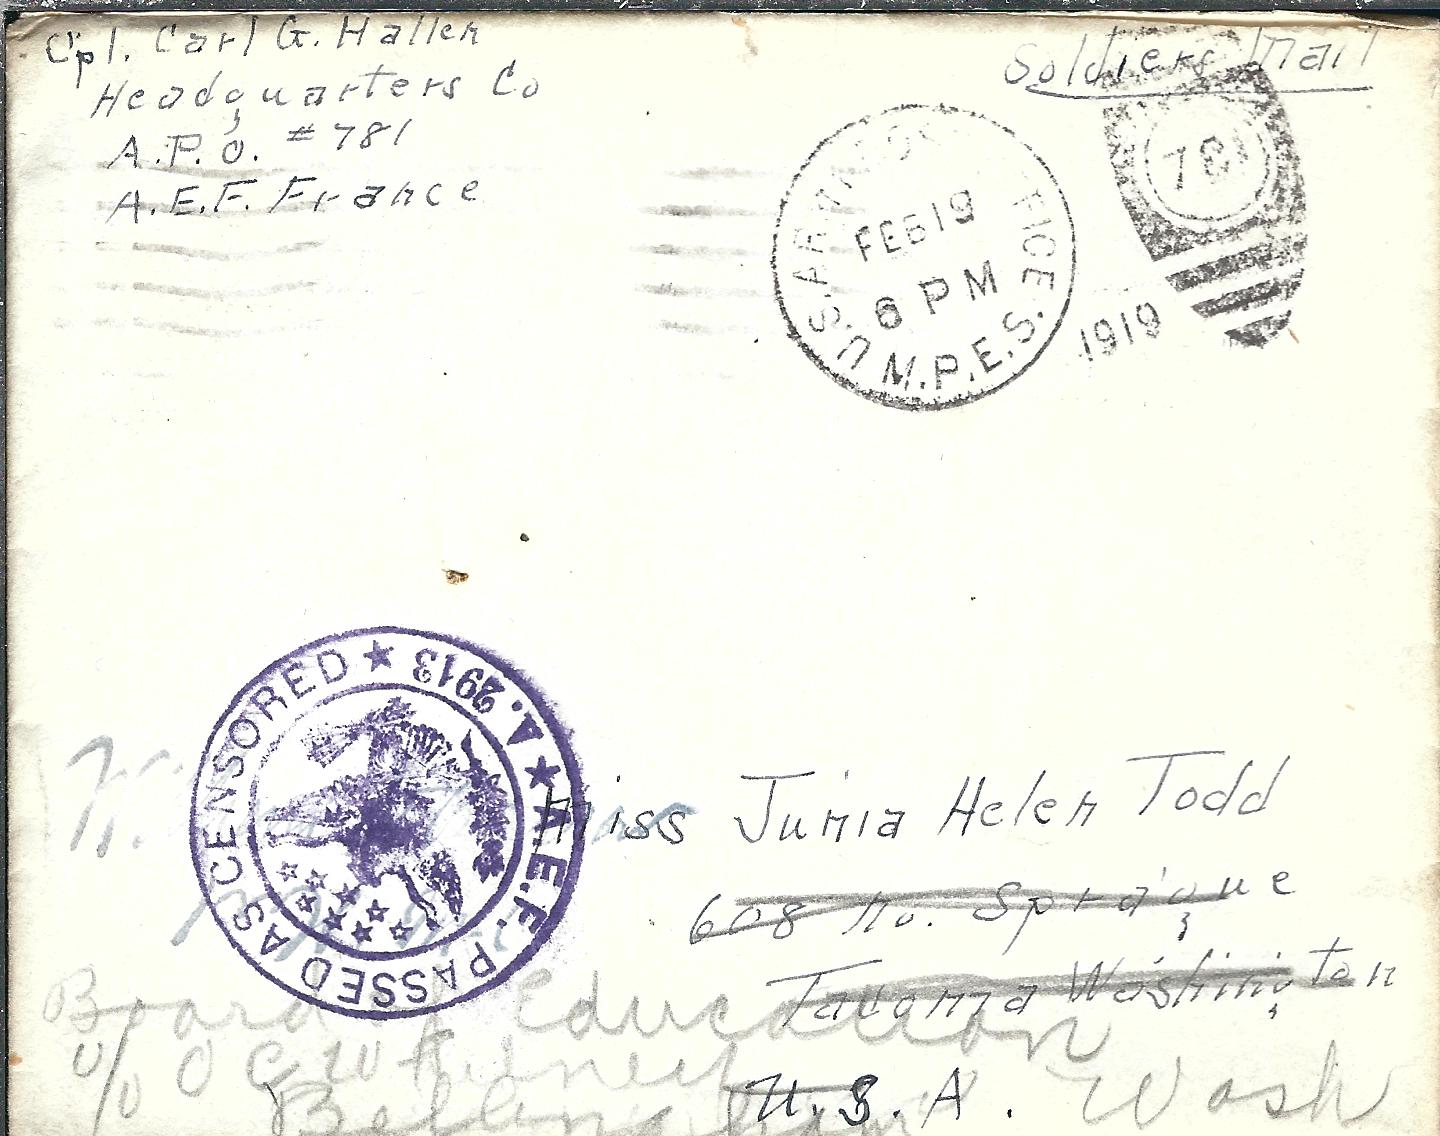 Cpl. Carl G. Haller
Headquarters Co
A.P.O. #781
A.E.F. France
Soldiers Mail
U.S. ARMY POST OFFICE.
M.P.E.S.
FEB 19
6 PM
1919
781
A.E.F. PASSED AS CENSORED ★ A. 2913 ★
Miss Junia Helen Todd
608 No. Sprague
Tacoma Washington
U.S.A.
Board of Education
c/o
Bellingham Wash